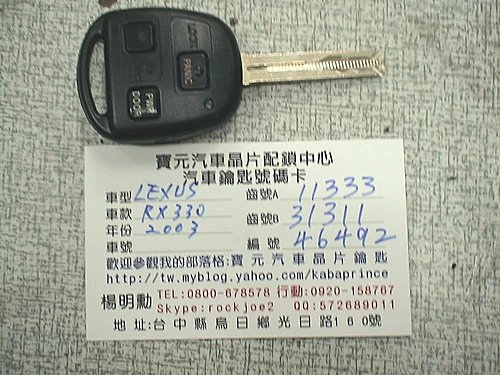 PANIC
PWR
DOOR
寶元汽車晶片配鎖中心
汽車鑰匙號碼卡
車型 LEXUS 齒號A 11333
車款 RX330 齒號B 31311
年份 2003
車號 編號 46492
歡迎參觀我的部落格:寶元汽車晶片鑰匙
http://tw.myblog.yahoo.com/kabaprince
楊明勳 TEL:0800-678578 行動:0920-158767
Skype:rockjoe2 QQ:572689011
地址:台中縣烏日鄉光日路160號